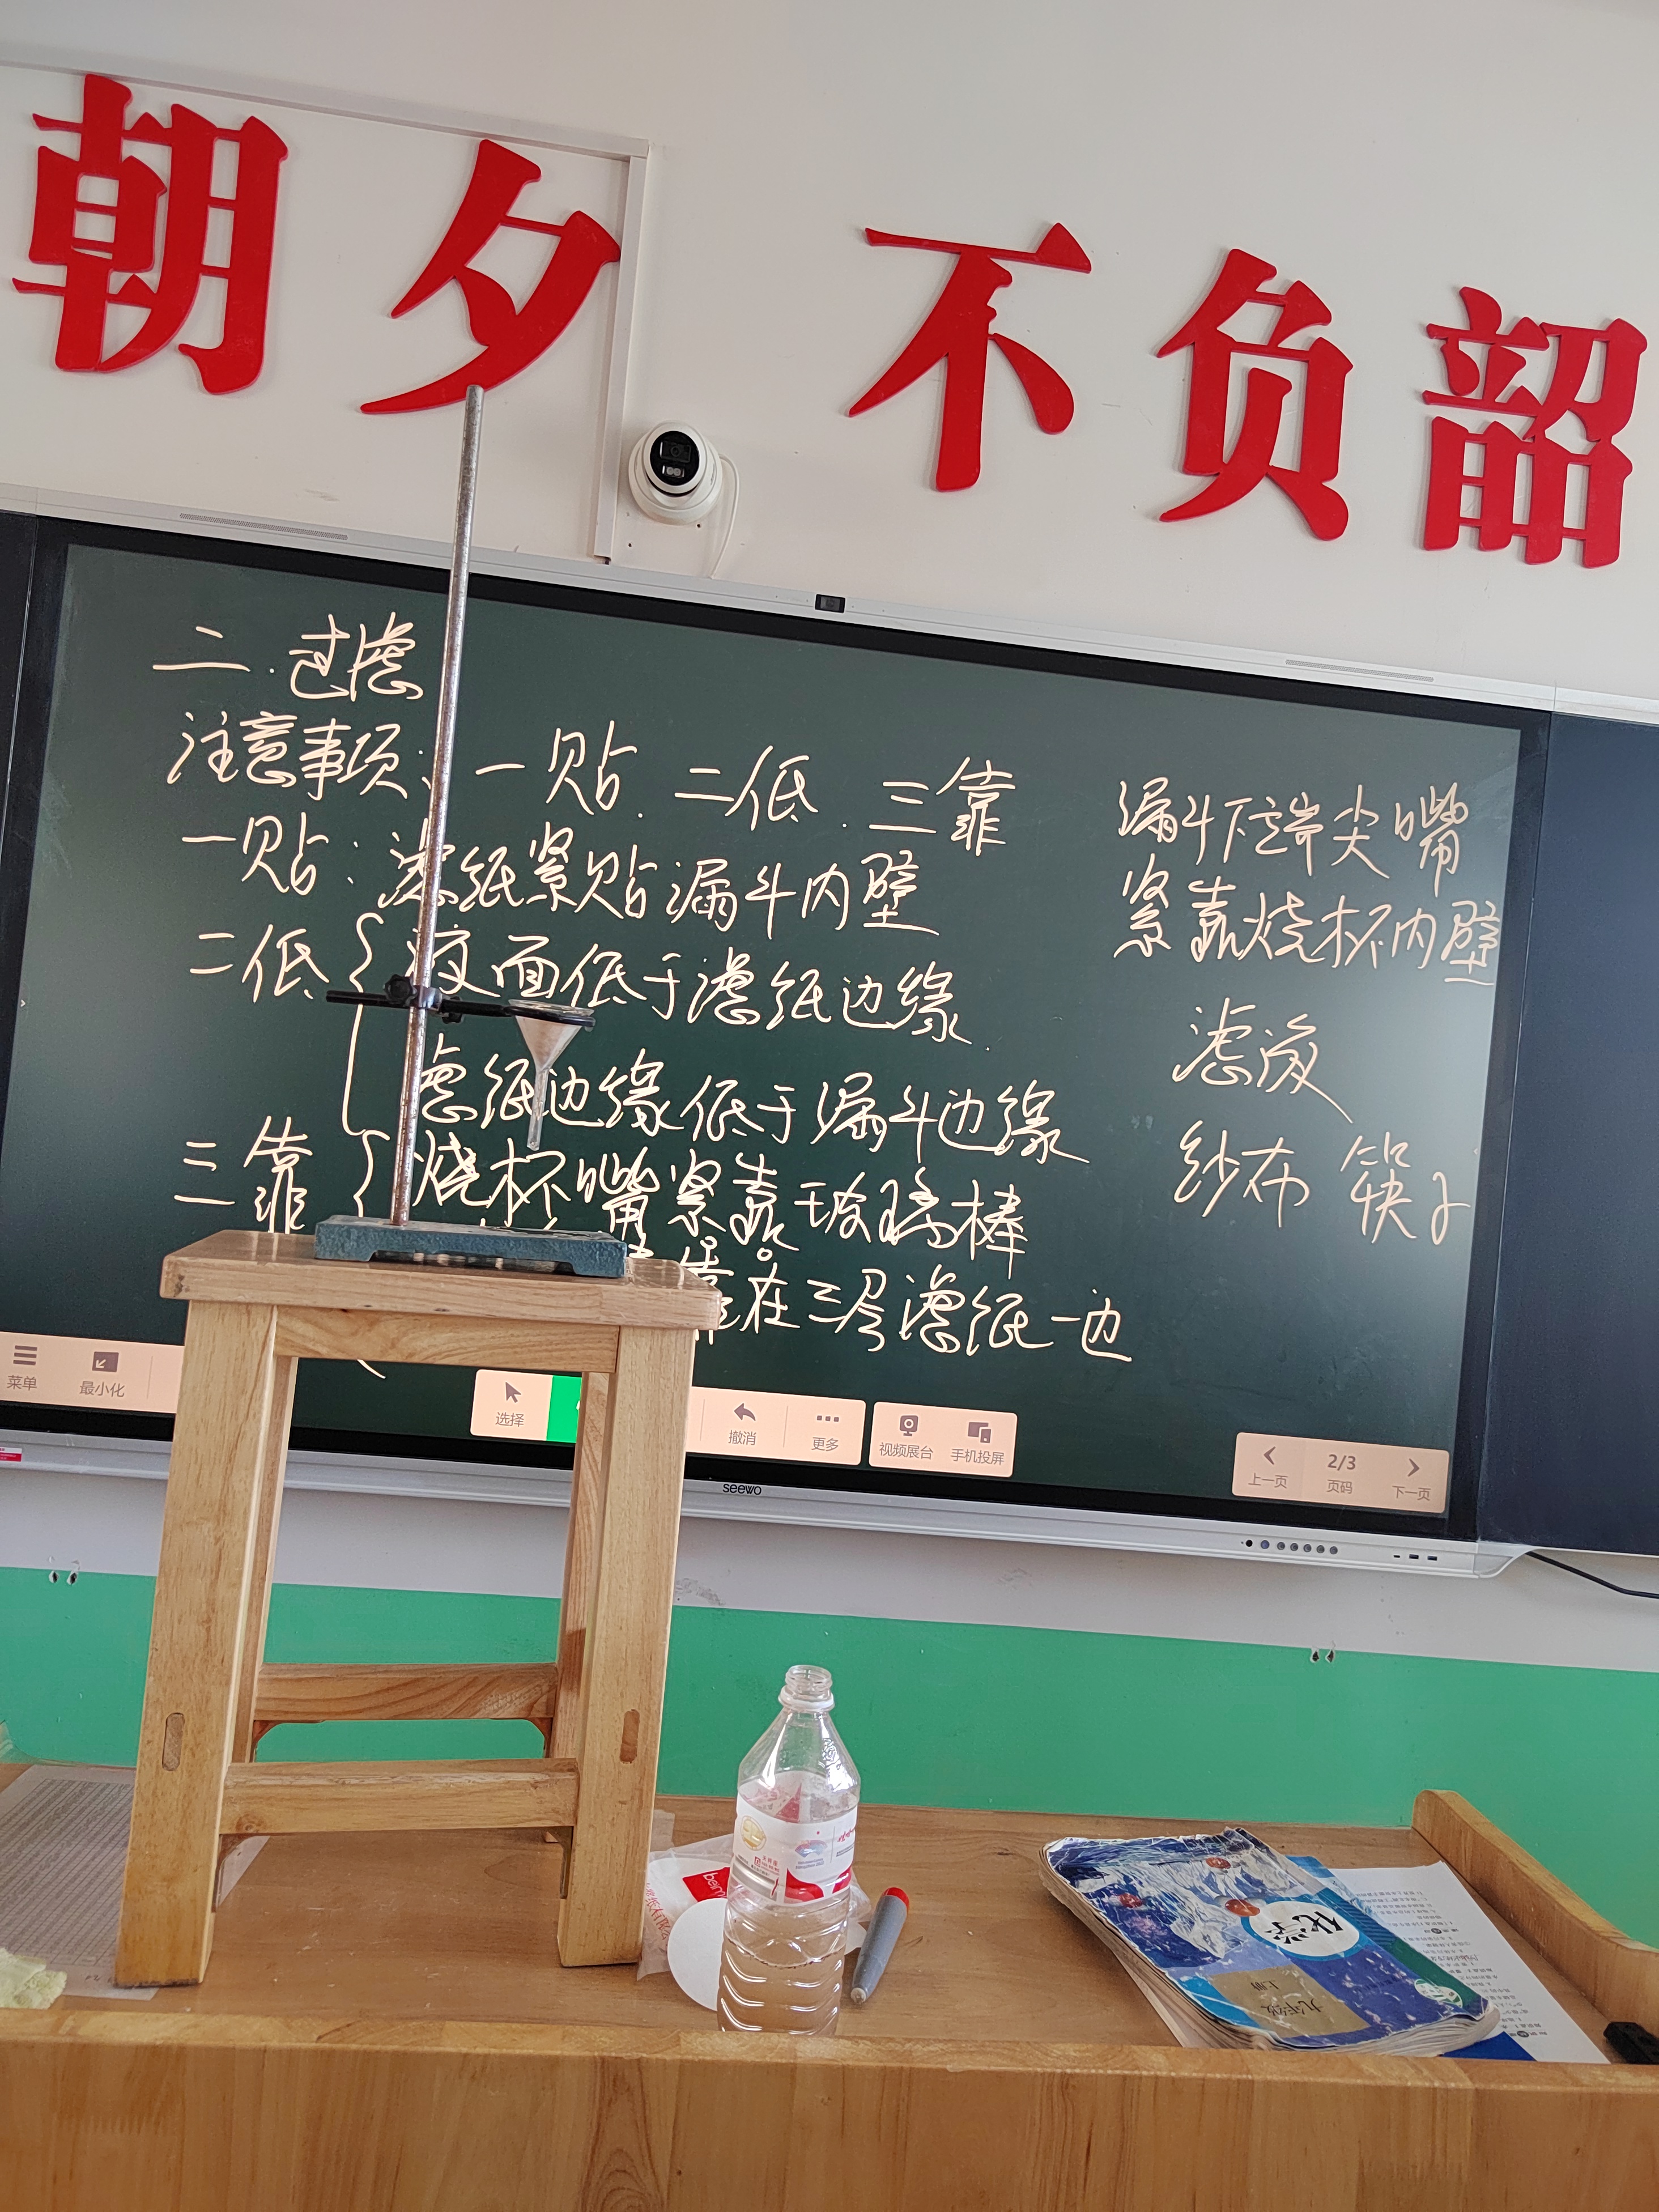 朝夕 不负韶
二.过滤
注意事项: 一贴.二低.三靠
一贴: 滤纸紧贴漏斗内壁
二低 液面低于滤纸边缘.
滤纸边缘低于漏斗边缘
三靠 烧杯嘴紧靠玻璃棒
靠在三层滤纸一边
漏斗下端尖嘴
紧靠烧杯内壁
滤液
纱布 筷子
菜单 最小化 选择 撤消 更多 视频展台 手机投屏
2/3
上一页 页码 下一页
seewo
化学
九年级
上册